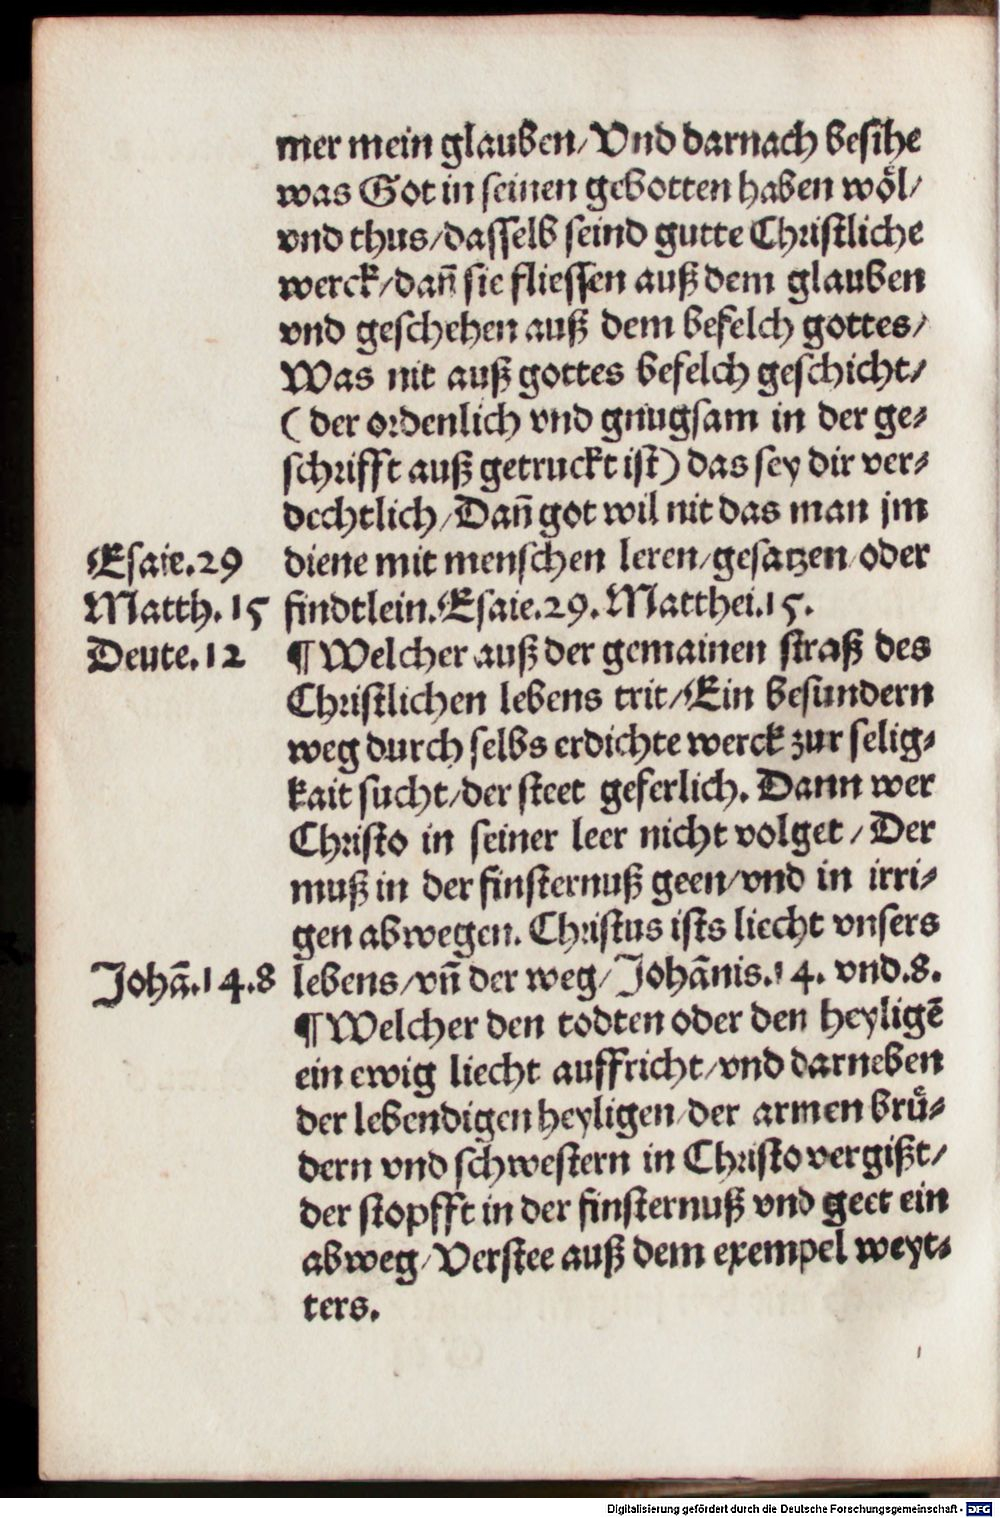 mer mein glauben/ Vnd darnach besihe
was Got in seinen gebotten haben woͤl/
vnd thus/dasselb seind gutte Christliche
werck/dañ sie fliessen auß dem glauben
vnd geschehen auß dem befelch gottes/
Was nit auß gottes befelch geschicht/
(der ordenlich vnd gnugsam in der ge⸗
schrifft auß getruckt ist) das sey dir ver⸗
dechtlich/Dañ got wil nit das man jm
Esaie.29 diene mit menschen leren/gesatzen/oder
Matth.15 findtlein.Esaie.29.Matthei.15.
Deute.12 ¶ Welcher auß der gemainen straß des
Christlichen lebens trit/Ein besundern
weg durch selbs erdichte werck zur selig⸗
kait sucht/der steet geferlich. Dann wer
Christo in seiner leer nicht volget/Der
muß in der finsternuß geen/vnd in irri⸗
gen abwegen. Christus ists liecht vnsers
Johã.14.8 lebens/vñ der weg/Johãnis.14. vnd.8.
¶ Welcher den todten oder den heyligẽ
ein ewig liecht auffricht/vnd darneben
der lebendigen heyligen/der armen bruͤ⸗
dern vnd schwestern in Christo vergißt/
der stopfft in der finsternuß vnd geet ein
abweg/Verstee auß dem exempel weyt⸗
ters.
Digitalisierung gefördert durch die Deutsche Forschungsgemeinschaft - DFG